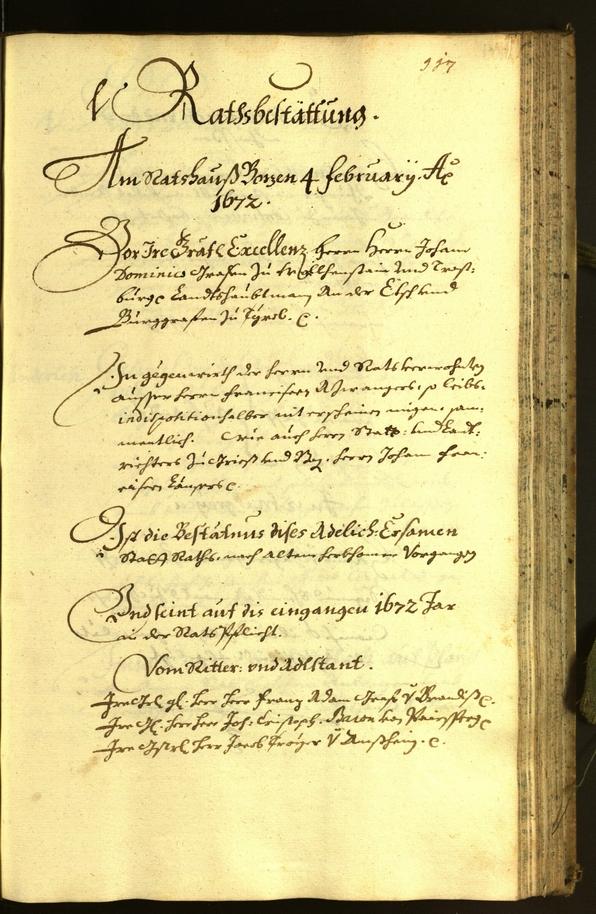 117
Rathsbestättung.
Am Ratshauß Bozen 4 february. Aº
1672.
Vor Ire Gräfl Excellenz Herrn Herrn Johann
Dominico Grafen zu Wolkhenstain und Trost:
burg Landtshaubtman an der Etsch und
Burggrafen zu Tyrol. c.
In gegenwirth der Herrn und Rats
ausser Herrn Francisen so leibs:
indispositionhalber nit erscheinen mögen, sam:
mentlich. Wie auch Herrn Statt: und Landt:
richters zu Grieß und Boz. Herrn Johann Fran:
cisen
Ist die Bestätnus dises Adelich: Ersamen
Statt Raths, nach altem Vorgangen
Und seint auf dis eingangen 1672 Jar
in der Rats Pflicht.
Vom Ritter: und Adlstant.
Herr Herr Franz Adam Graf V Brandiß c.
Herr Herr Joh: Cristoph. Baron von
Herr Jacob Tröyer V c.